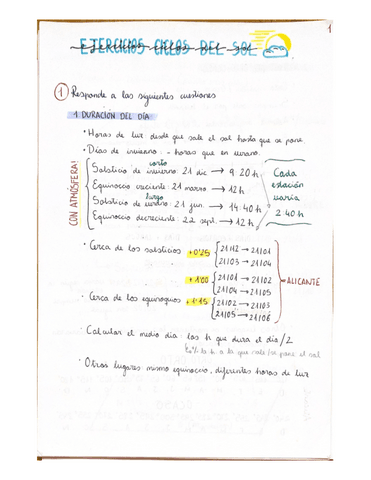 EJERCICIOS CICLOS DEL SOL
1
① Responde a las siguientes cuestiones
1. DURACIÓN DEL DÍA
• Horas de luz desde que sale el sol hasta que se pone.
• Días de invierno: - horas que en verano.
CON ATMÓSFERA!
corto
Solsticio de invierno: 21 dic → 9'20h
Equinoccio creciente: 21 marzo → 12h
largo
Solsticio de verano: 21 jun. → 14'40h
Equinoccio decreciente: 22 sept. → 12h
Cada
estación
varía
2'40h
• Cerca de los solsticios +0'25 21/12 → 21/01
21/05 → 21/04
+1'00 21/01 → 21/02
21/04 → 21/05
• Cerca de los equinoccios +1'15 21/02 → 21/03
21/05 → 21/06
= ALICANTE
• Calcular el medio día: las h que dura el día /2
la h. a la que sale/se pone el sol
• Otros lugares mismo equinoccio, diferentes horas de luz